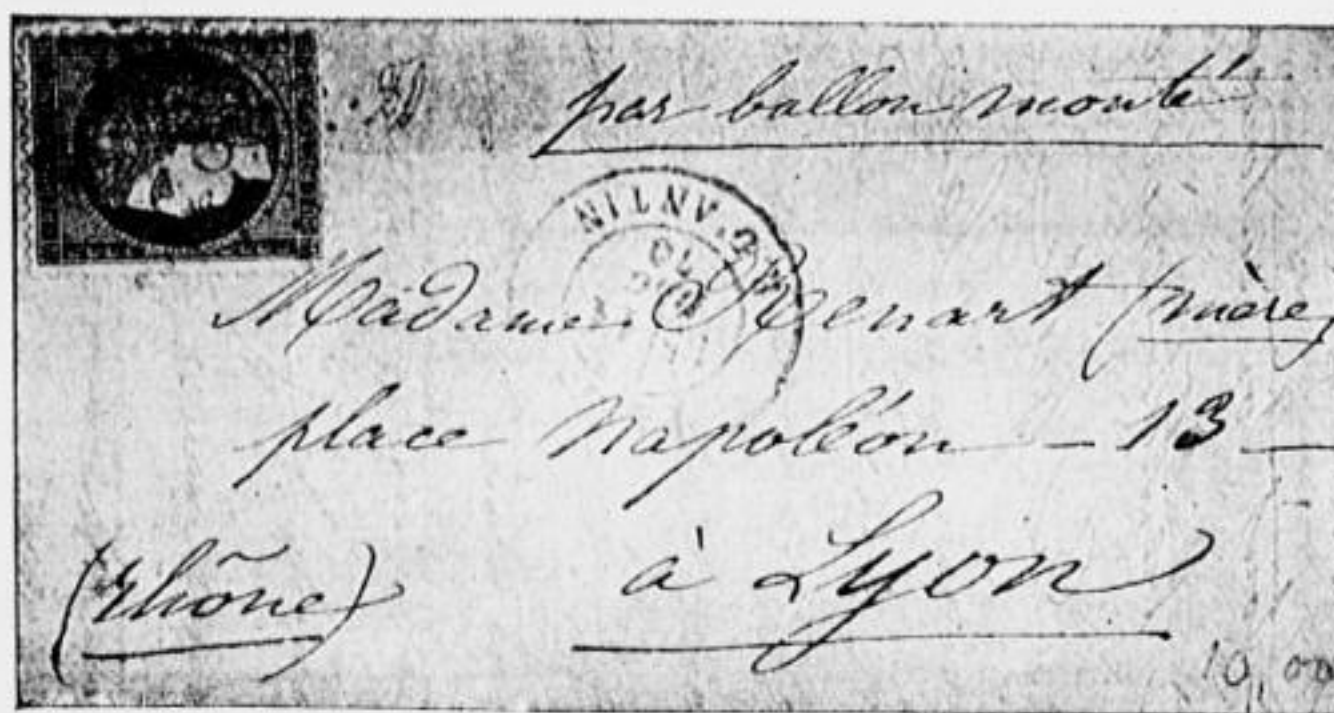 par ballon monté
Madame Renart (mère)
place Napoléon - 13 -
à Lyon
(rhône)
10,00